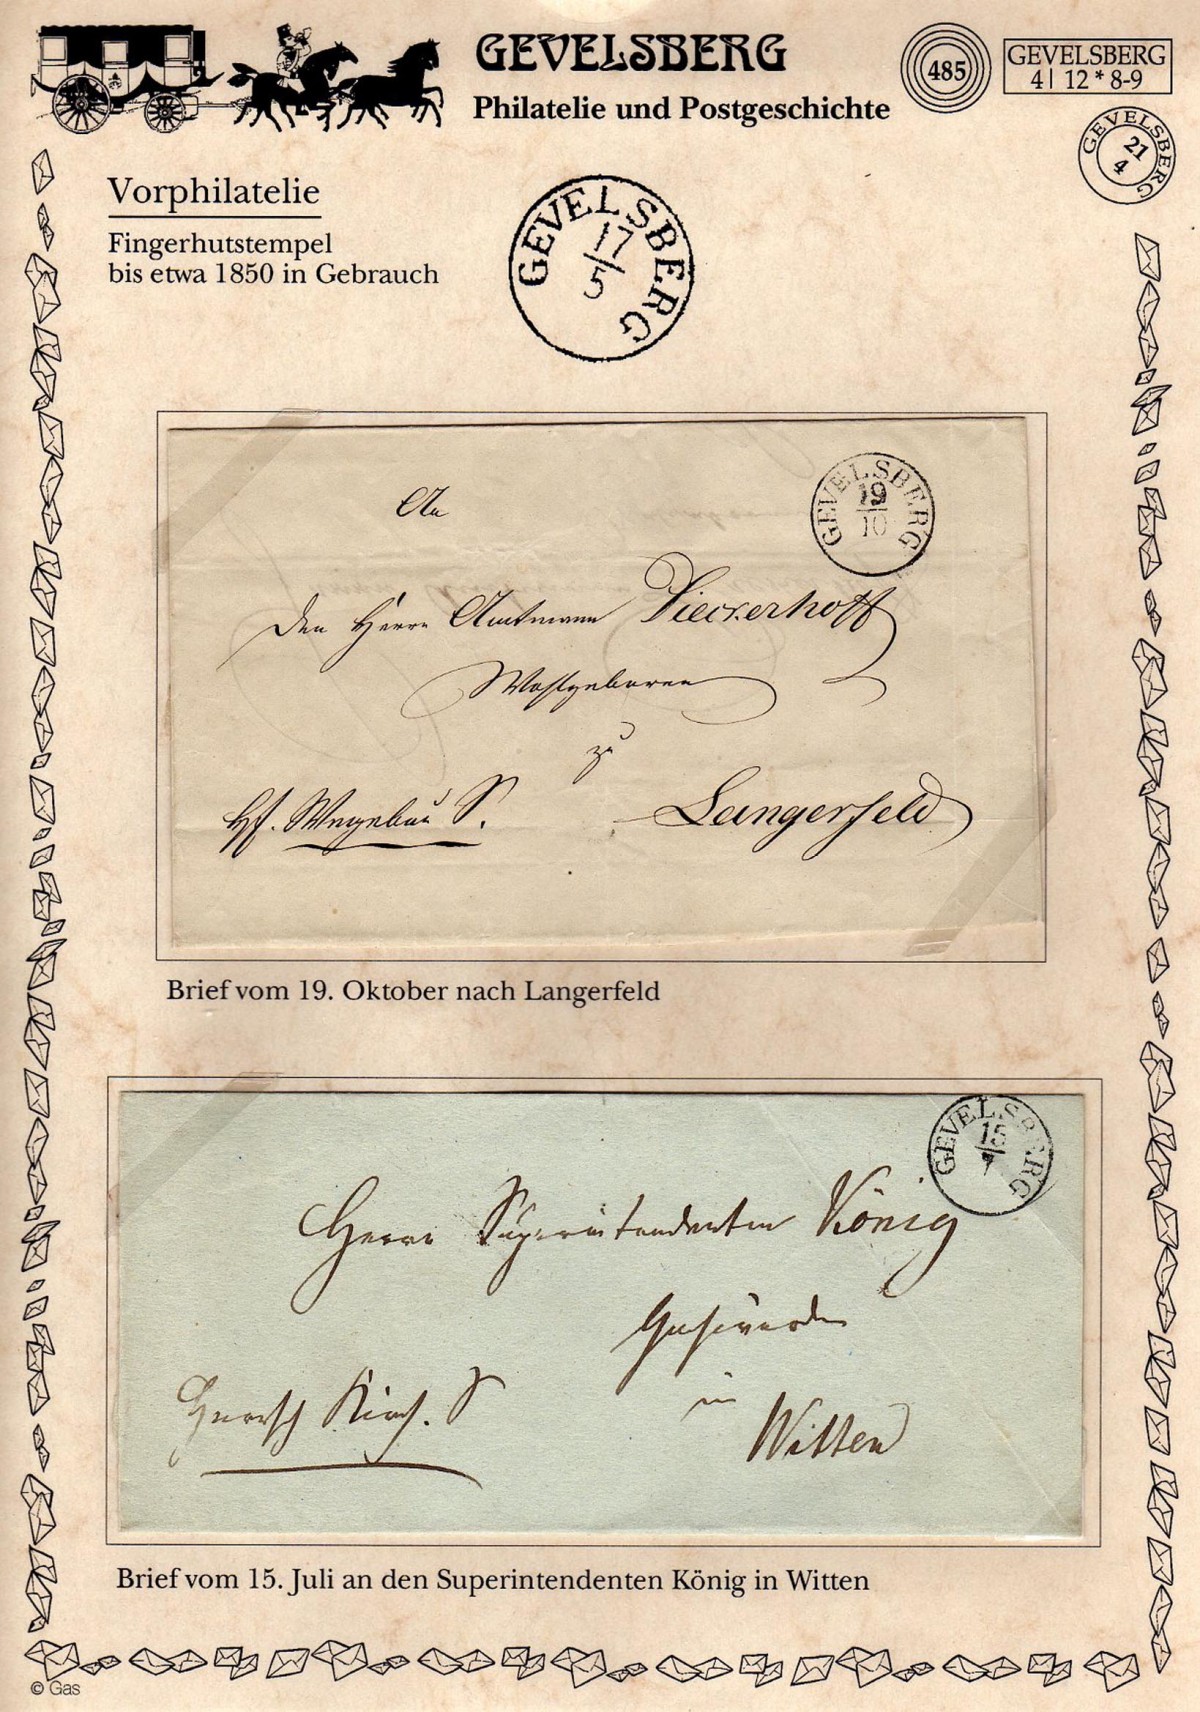 GEVELSBERG
Philatelie und Postgeschichte
485
GEVELSBERG
4| 12 * 8-9
GEVELSBERG
21
4
Vorphilatelie
Fingerhutstempel
bis etwa 1850 in Gebrauch
GEVELSBERG
17
5
GEVELSBERG
19
10
An
den Herrn Amtmann Vieckerhoff
Wohlgeboren
zu
Hf. Wegebau S.
Langerfeld
Brief vom 19. Oktober nach Langerfeld
GEVELSBERG
15
7
Herrn Superintendenten König
in
Kirch. S
Witten
Brief vom 15. Juli an den Superintendenten König in Witten
© Gas